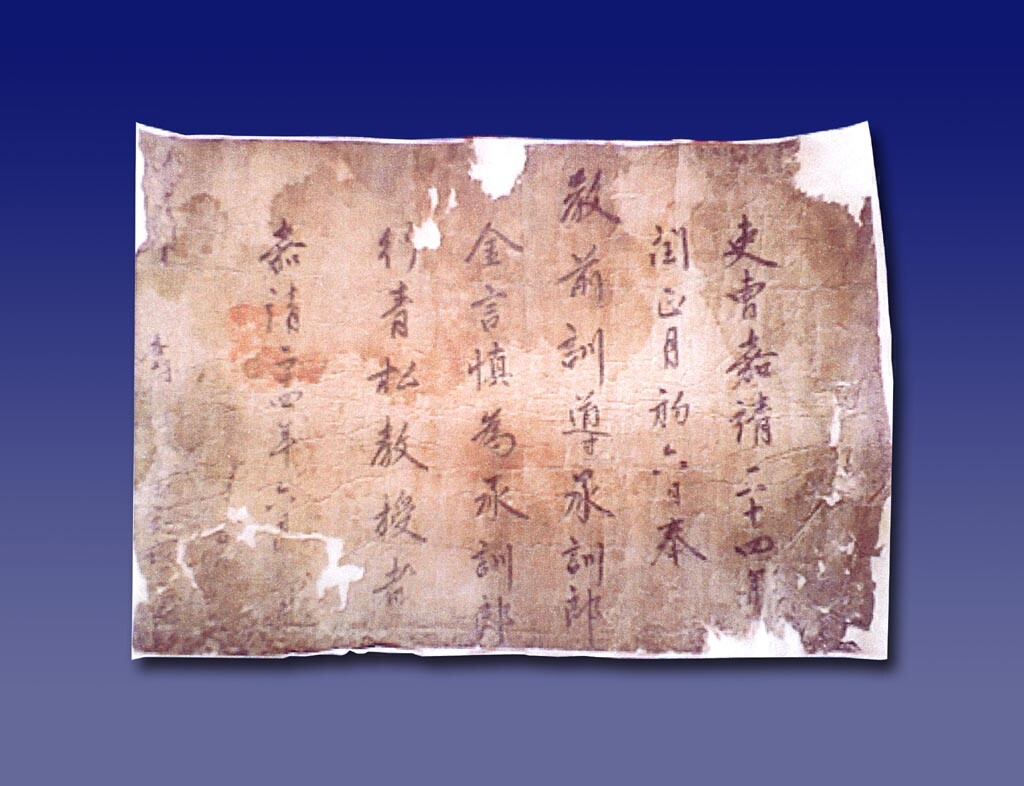 吏曹嘉靖二十四年
閏正月初六日奉
教前訓導承訓郎
金言慎為承訓郎
行青松教授者
嘉靖二十四年六月